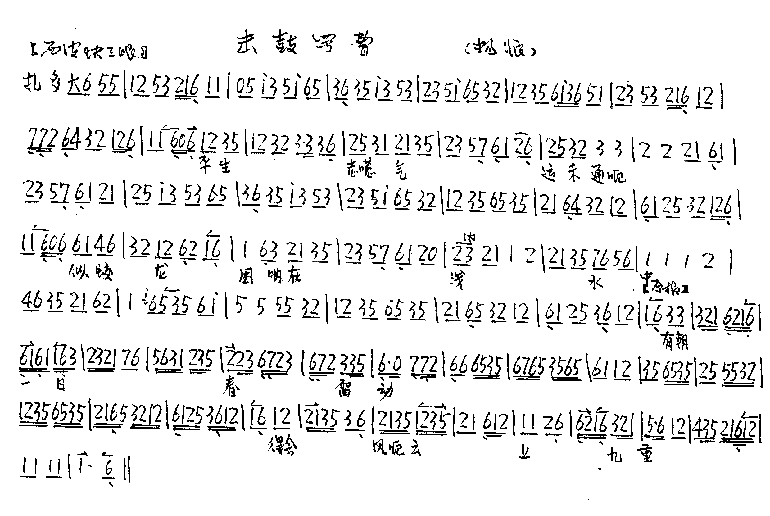 击鼓骂曹
扎多大6 55|12 53 216 11|05 i3 5i 65|36 35 i3 53|235i 6532|1235 6i36 51|23 53 216 12|
7772 6432 126|11 606 12 35|12 32 33 36|2531 2135|23 57 61 26|2532 3 3|2 2 21 61|
平生 志 气 运未通呃
23 57 61 21|25 i3 53 65|36 35 i3 53|235i 65 32|1235 6535|21 6432 12|61 2532 126|
11 606 61 46|32 12 62 16|1 63 21 35|23 57 61 20|23 21 1 2|2135 76 56|1 1 1 2|
似蛟 龙 困 在 浅 水 中
46 35 21 62|1 65 35 6 i|5 5 55 32|1235 6535|21 65 32 12|61 25 36 12|16 33|321 6216|
有朝
6161 163|2321 76|5631 235|2236723|672 335|6·0 772|66 6535|6765 3565|61 12|35 6535|25 5532|
一日 春 雷 动
1235 6535|2165 3212|6125 3612|16 12|2135 36|2135 1235|21 612|11 26|6216 32|5·6 12|435 21612|
得会 风呃云 上 九 重
11 11|1· 6||